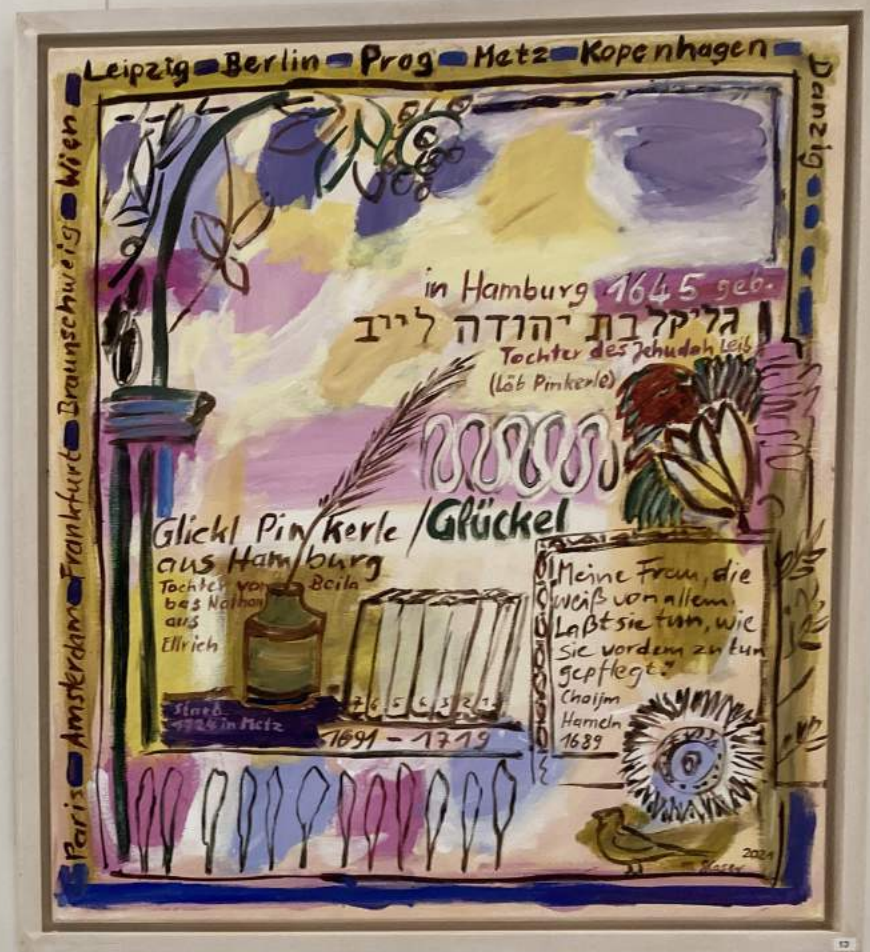 Leipzig - Berlin - Prag - Metz - Kopenhagen -
Danzig
Paris - Amsterdam - Frankfurt - Braunschweig - Wien
in Hamburg 1645 geb.
גליקל בת יהודה לייב
Tochter des Jehudah Leib
(Löb Pinkerle)
Glickl Pinkerle / Glückel
aus Hamburg
Tochter von Beila
bas Nathan
aus
Ellrich
Starb
1724 in Metz
7 6 5 4 3 2 1
1691 - 1719
Meine Frau, die
weiß von allem.
Laßt sie tun, wie
sie vordem zu tun
gepflegt."
Chaijm
Hameln
1689
2021
13